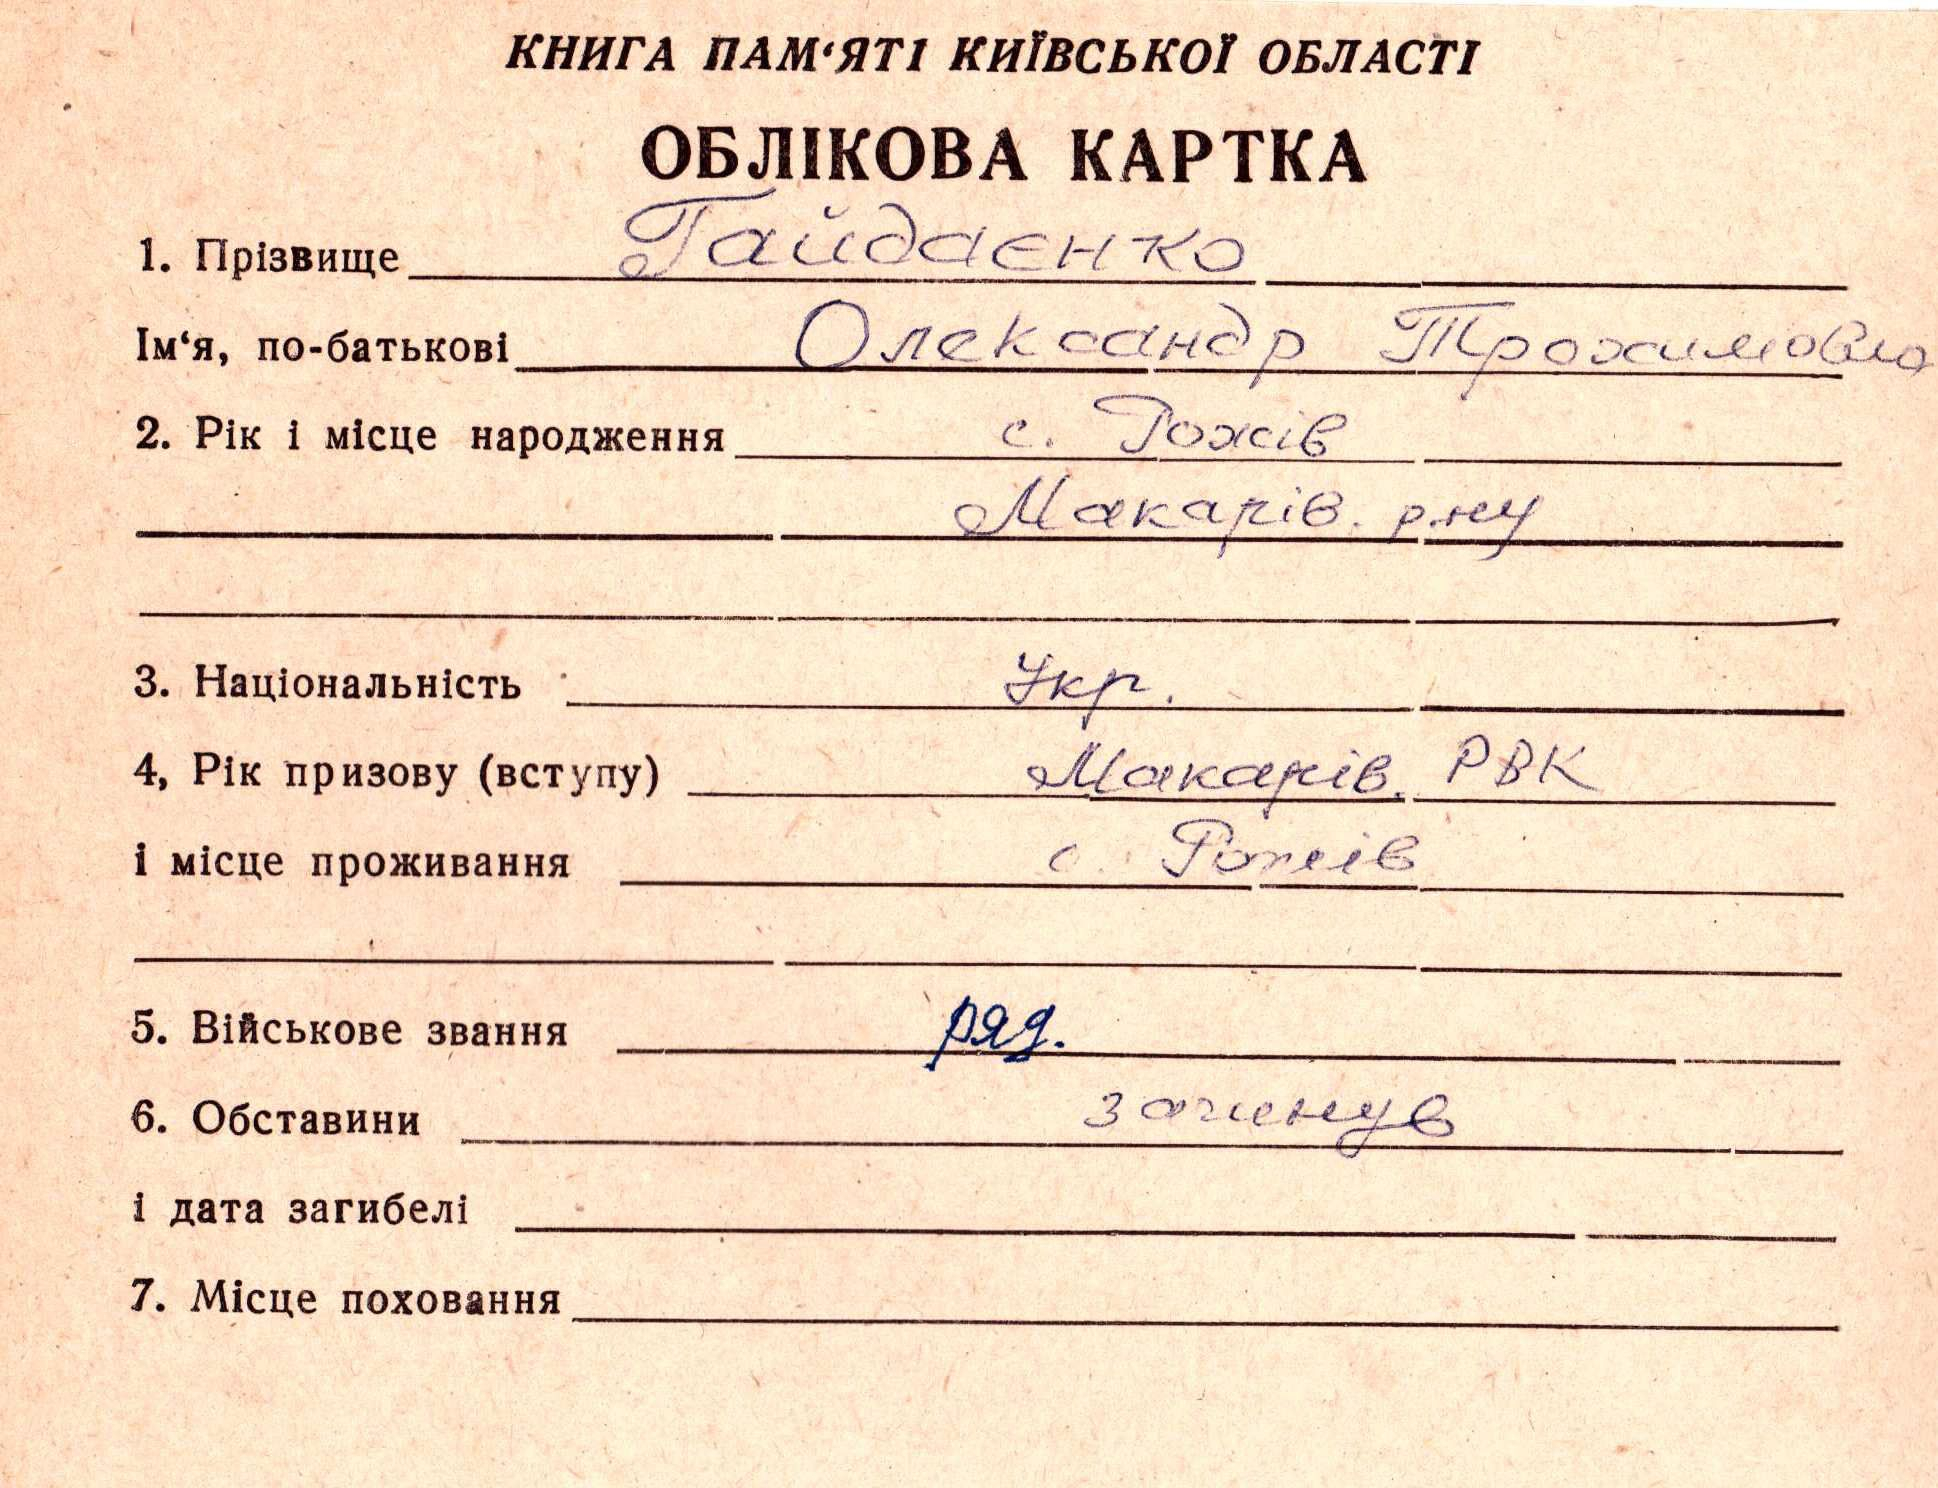 КНИГА ПАМ‘ЯТІ КИЇВСЬКОЇ ОБЛАСТІ
ОБЛІКОВА КАРТКА
1. Прізвище Гайдаєнко
Ім‘я, по-батькові Олександр Трохимович
2. Рік і місце народження с. Рожів
Макарів. р.ну
3. Національність Укр.
4, Рік призову (вступу) Макарів. РВК
і місце проживання с. Рожів
5. Військове звання ряд.
6. Обставини загинув
і дата загибелі
7. Місце поховання